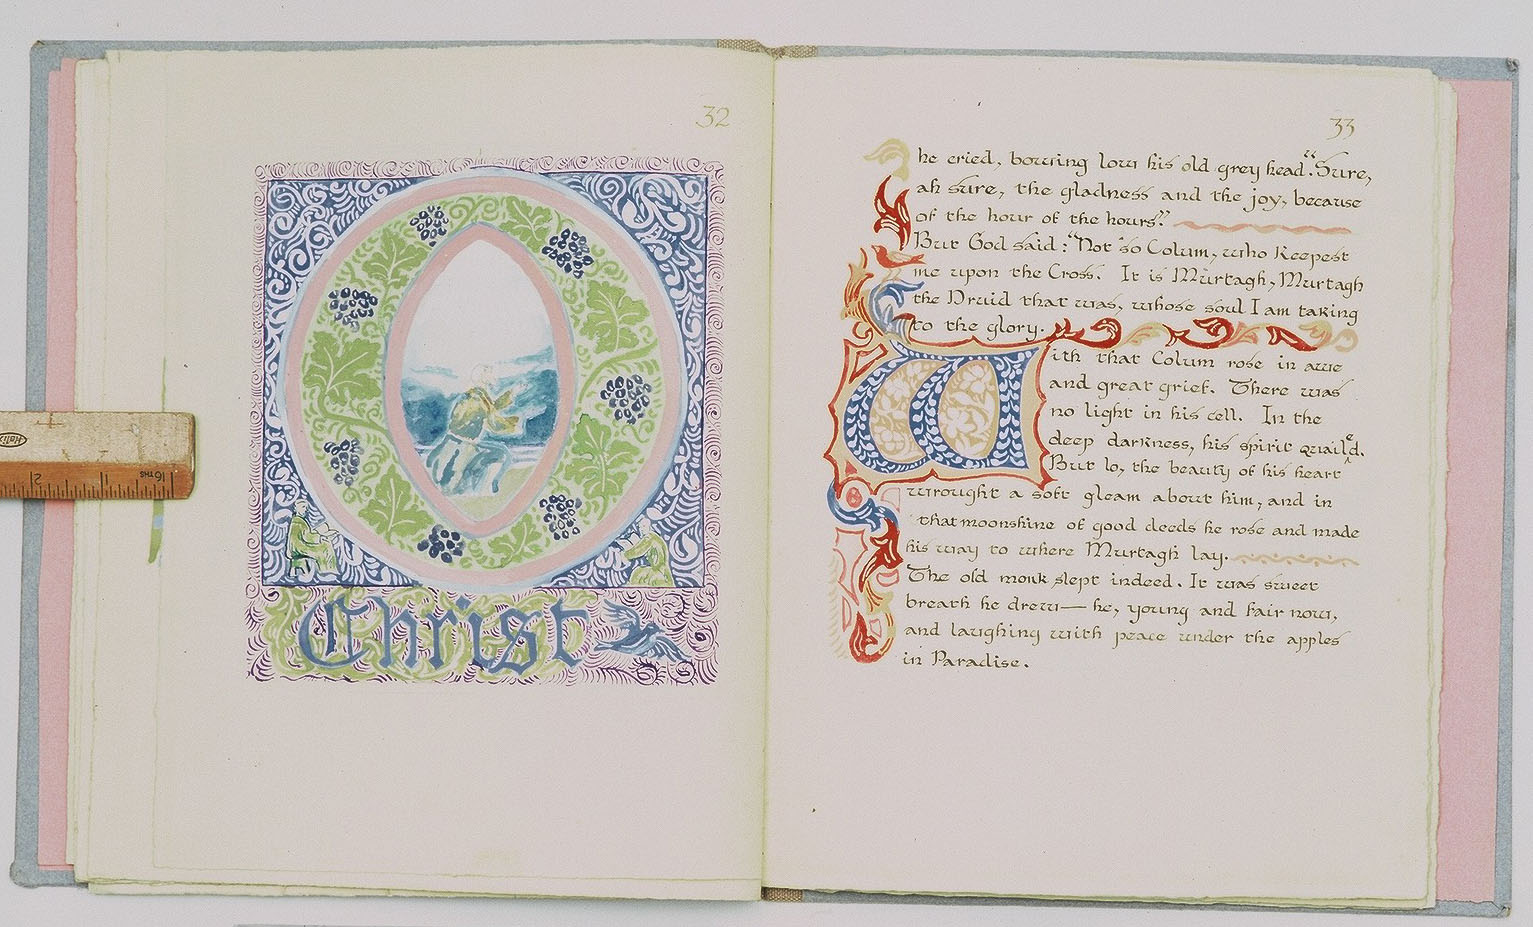 32
Christ
33
he cried, bowing low his old grey head. "Sure,
ah sure, the gladness and the joy, because
of the hour of the hours."
But God said: "Not so Colum, who keepest
me upon the Cross. It is Murtagh, Murtagh
the Druid that was, whose soul I am taking
to the glory.
With that Colum rose in awe
and great grief. There was
no light in his cell. In the
deep darkness, his spirit quailed.
But lo, the beauty of his heart
wrought a soft gleam about him, and in
that moonshine of good deeds he rose and made
his way to where Murtagh lay.
The old monk slept indeed. It was sweet
breath he drew— he, young and fair now,
and laughing with peace under the apples
in Paradise.
16THS
1
2